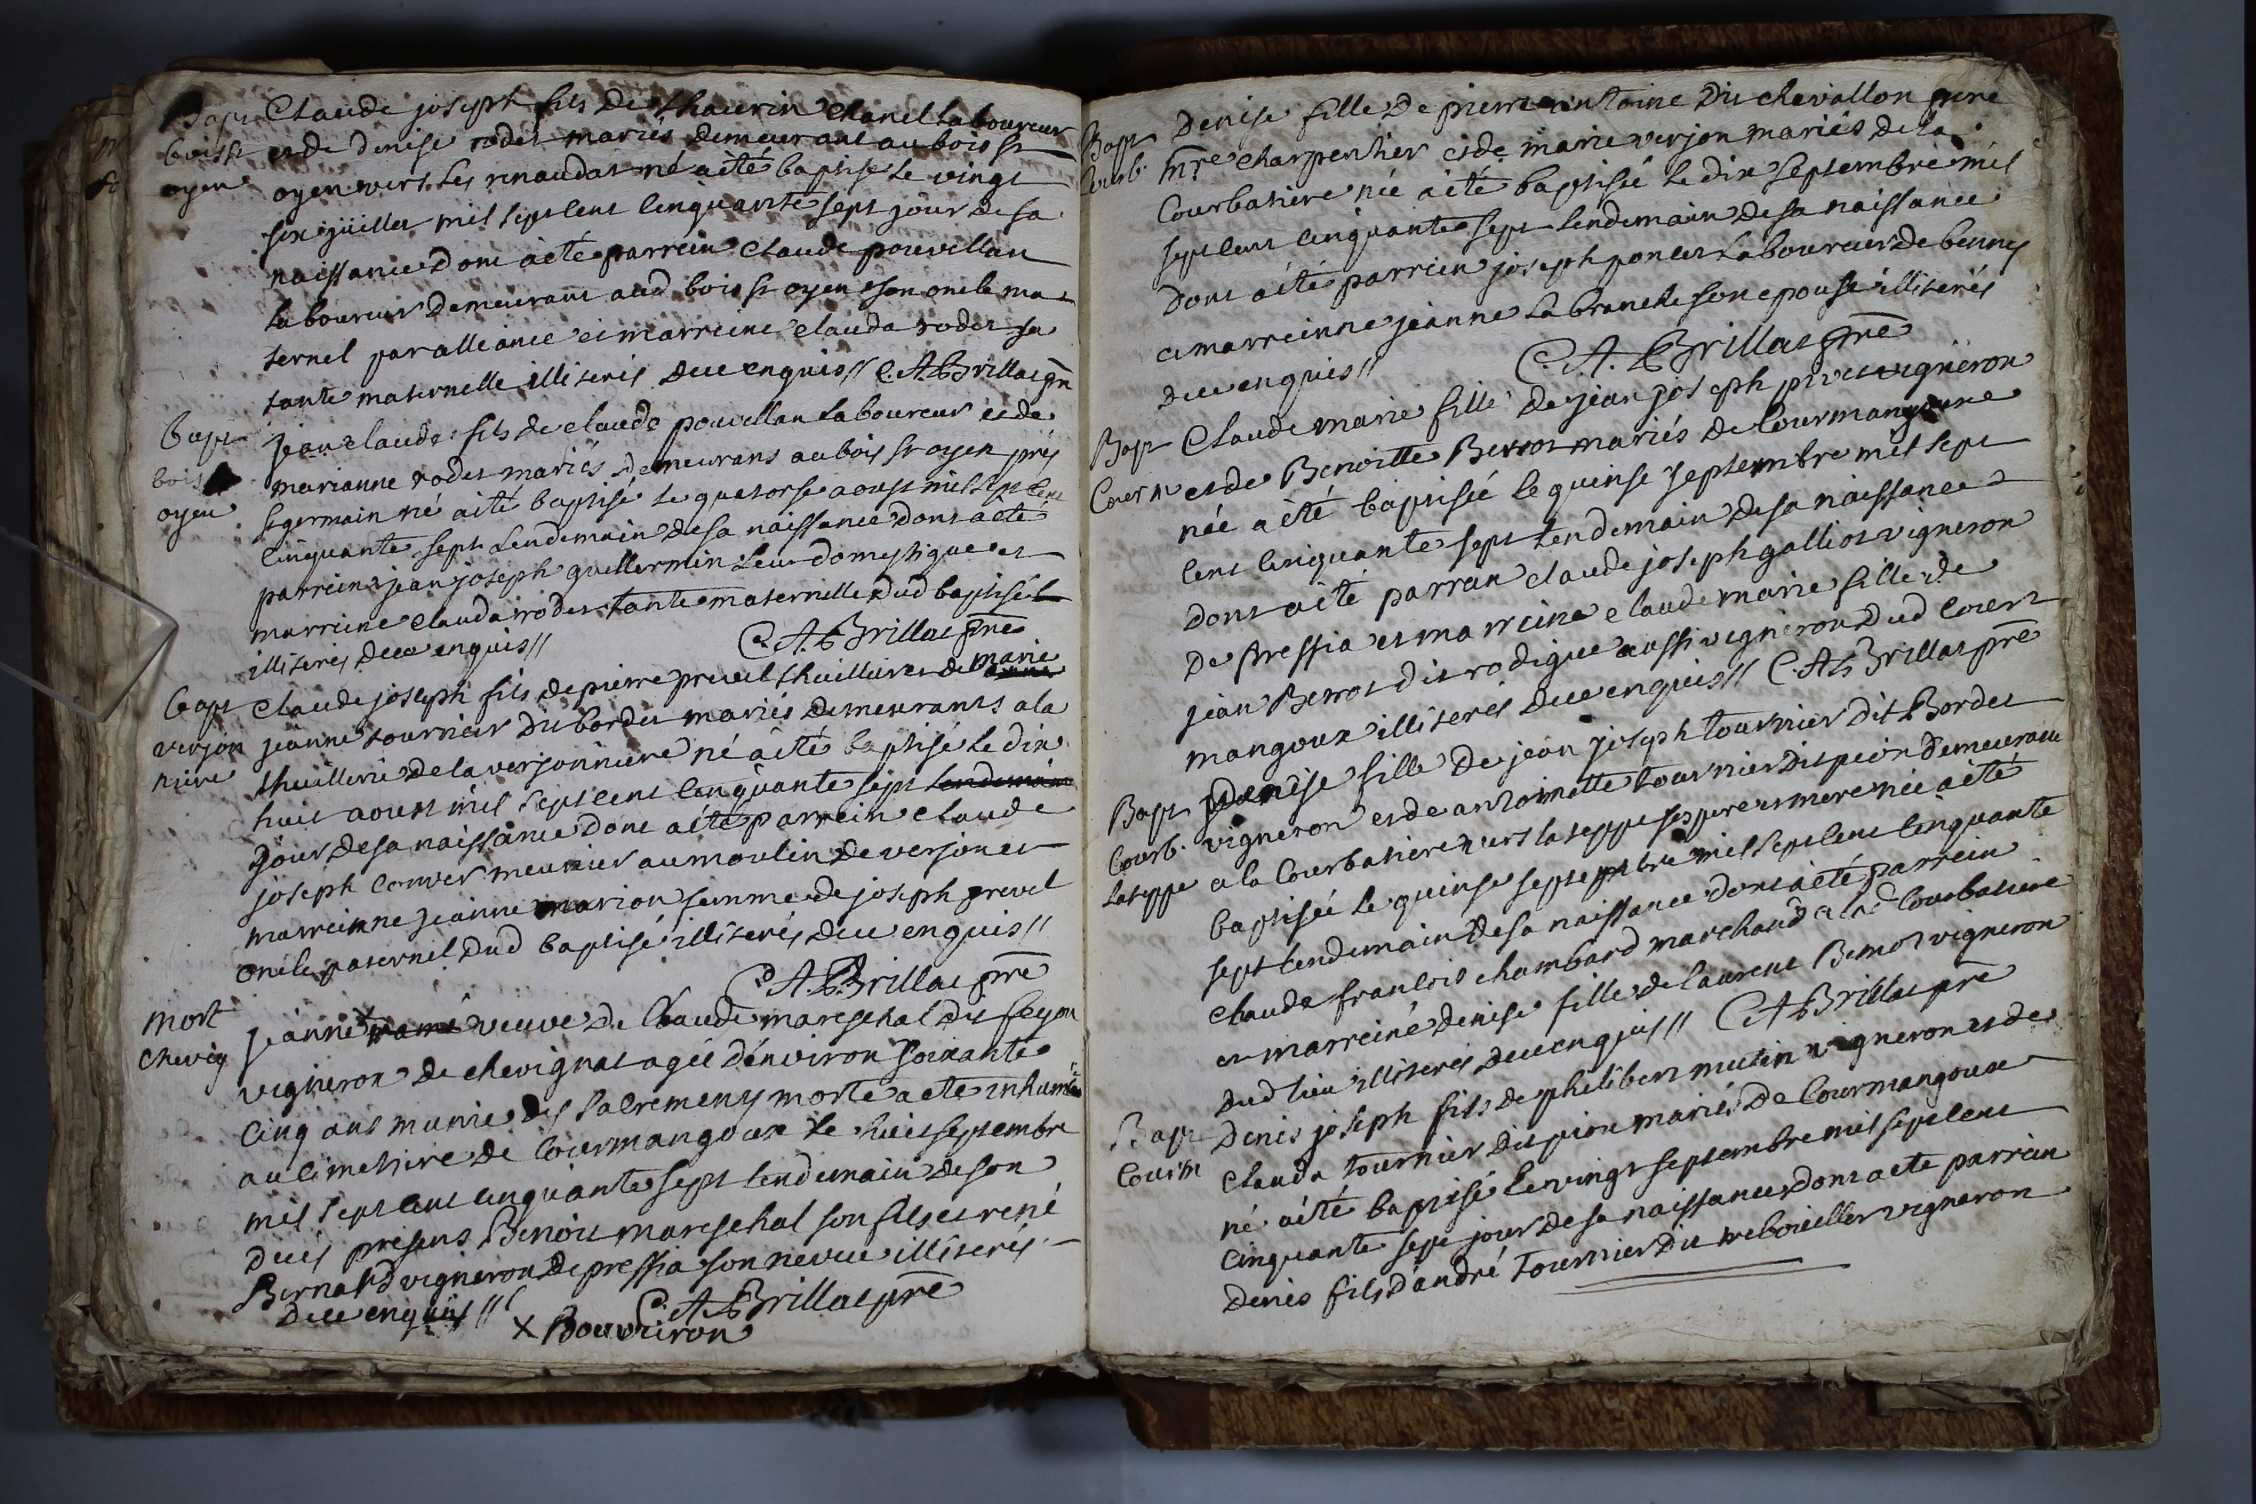 Bapt Claude joseph fils de thaurin chanel laboureur
boisst et de denise rodet mariés demeurant au bois st
oyen oyen vers les renaudat né a été baptisé le vingt
six juillet mil sept cent cinquante sept jour de sa
naissance dont a été parrein claude pouvillan
laboureur demeurant aud bois st oyen son oncle ma
ternel par alliance et marreine clauda rodet sa
tante maternelle illiterés deue enquis // C. A. Brillat pre
bapt jean claude fils de claude pouvillan laboureur et de
bois marianne rodet mariés demeurans au bois st oyen près
oyen st germain né a été baptisé le quatorse aoust mil sept cent
cinquante sept lendemain de sa naissance dont a été
parrein jean joseph guillermin leur domestique et
marreine clauda rodet tante maternelle dud baptisé
illiterés deue enquis // C. A. Brillat pre
bapt Claude joseph fils de pierre prevel thuillier et de marie
verjon jeanne tournier du bordet mariés demeurants a la
niere thuillerie de la verjonniere né a été baptisé le dix
huit aoust mil sept cent cinquante sept lendemain
jour de sa naissance dont a été parrein claude
joseph convert meunier au moulin de verjon et
marreinne jeanne marion femme de joseph prevel
oncle paternel dud baptisé illiterés deue enquis //
C. A. Brillat pre
mort jeanne x veuve de Claude mareschal dit feyon
chevig vigneron de chevignat agée d'environ soixante
cinq ans munie des sacremens morte a été inhumée
au cimetiere de Courmangoux le huit septembre
mil sept cent cinquante sept lendemain de son
deces presens Benoit mareschal son fils et rené
Bernard vigneron de pressia son neveu illiterés
deue enquis // C. A. Brillat pre
x Bouvriron
Bapt Denise fille de pierre antoine du chevallon frere
Courb. mre charpentier et de marie verjon mariés de la
Courbatiere née a été baptisée le dix septembre mil
sept cent cinquante sept lendemain de sa naissance
dont a été parrein joseph poncet laboureur de beny
et marreinne jeanne la branche son epouse illiterés
deue enquis // C. A. Brillat pre
Bapt Claude marie fille de jean joseph pivet vigneron
Courm et de Benoitte Berrot mariés de Courmangoux
née a été baptisée le quinse septembre mil sept
cent cinquante sept lendemain de sa naissance
dont a été parrain claude joseph galliot vigneron
de pressia et marreine claude marie fille de
jean Berrot dit rodigue aussi vigneron dud Cour
mangoux illiterés deue enquis // C. A. Brillat pre
Bapt Denise fille de jean joseph tournier dit Bordet
Courb. vigneron et de antoinette tournier dit pion demeurans
la teppe a la Courbatiere vers la teppe ses pere et mere née a été
baptisée le quinse septembre mil sept cent cinquante
sept lendemain de sa naissance dont a été parrein
claude francois chambard marchand a lad Courbatiere
et marreine denise fille de laurent Bernot vigneron
dud lieu illiterés deue enquis // C. A. Brillat pre
Bapt Denis joseph fils de philibert mutin vigneron et de
Courm clauda tournier dit pion mariés de Courmangoux
né a été baptisé le vingt septembre mil sept cent
cinquante sept jour de sa naissance dont a été parrain
denis fils d'andré tournier dit treboeiller vigneron